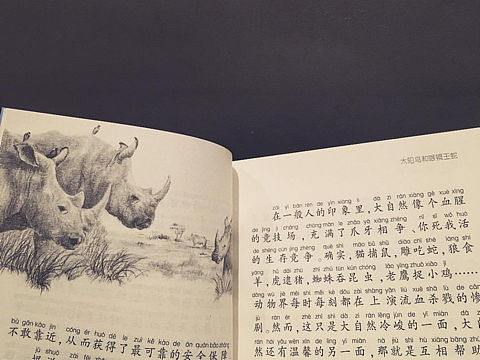 bù gǎn kào jìn cóng ér huò dé le zuì kě kào de ān quán bǎo zhàng
不敢靠近，从而获得了最可靠的安全保障
太阳鸟和眼镜王蛇
zài yì bān rén de yìn xiàng lǐ dà zì rán xiàng gè xuè xīng
在一般人的印象里，大自然像个血腥
de jìng jì chǎng chōng mǎn le zhǎo yá xiāng zhēng nǐ sǐ wǒ huó
的竞技场，充满了爪牙相争、你死我活
de shēng cún jìng zhēng què shí māo bǔ shǔ diāo chī shé láng shí
的生存竞争。确实，猫捕鼠，雕吃蛇，狼食
yáng hǔ dǎi zhū zhī zhū tūn kūn chóng lǎo yīng zhuō xiǎo jī
羊，虎逮猪，蜘蛛吞昆虫，老鹰捉小鸡……
dòng wù jiè měi shí měi kè dōu zài shàng yǎn liú xuè shā lù de cǎn
动物界每时每刻都在上演流血杀戮的惨
jù rán ér zhè zhǐ shì dà zì rán lěng jùn de yí miàn dà zì
剧。然而，这只是大自然冷峻的一面，大自
rán hái yǒu wēn xīn de lìng yí miàn nà jiù shì hù xiāng bāng zhù
然还有温馨的另一面，那就是互相帮助